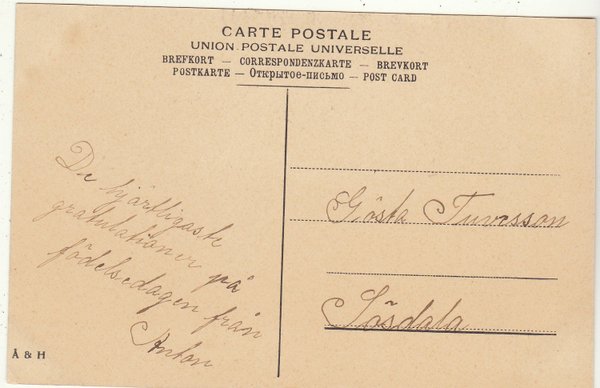 CARTE POSTALE
UNION POSTALE UNIVERSELLE
BREFKORT — CORRESPONDENZKARTE — BREVKORT
POSTKARTE — Открытое-письмо — POST CARD
De hjärtligaste
gratulationer på
födelsedagen från
Anton
Gösta Tuvesson
Sösdala
Å & H